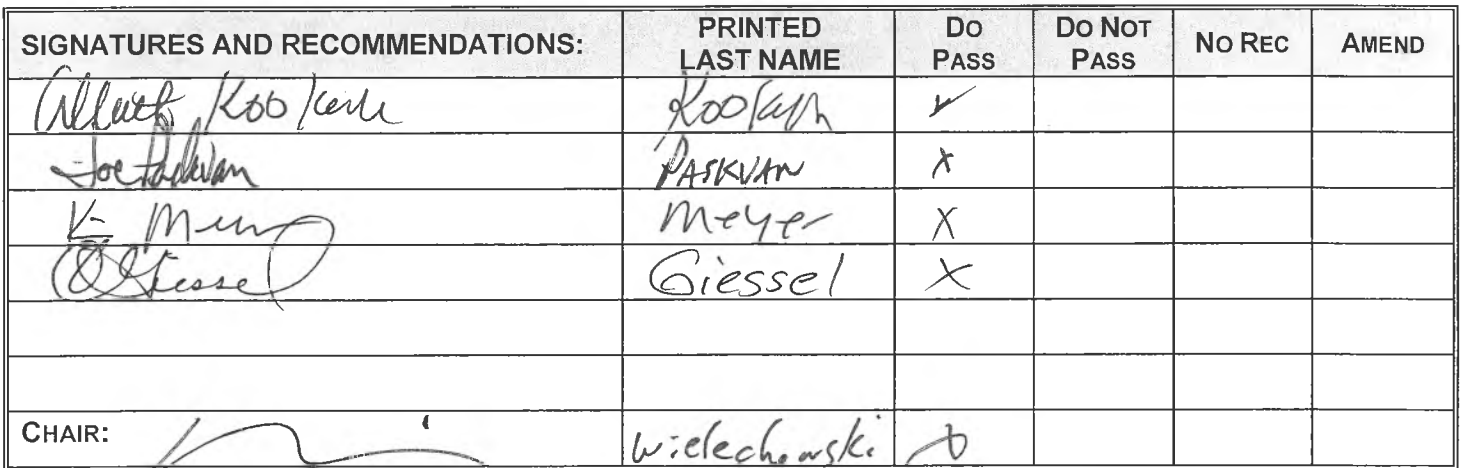 SIGNATURES AND RECOMMENDATIONS: PRINTED LAST NAME DO PASS DO NOT PASS NO REC AMEND
Albert Kookesh Kookesh ✓
Joe Paskvan PASKVAN X
K Meyer Meyer X
C Giessel Giessel X
CHAIR: Wielechowski X